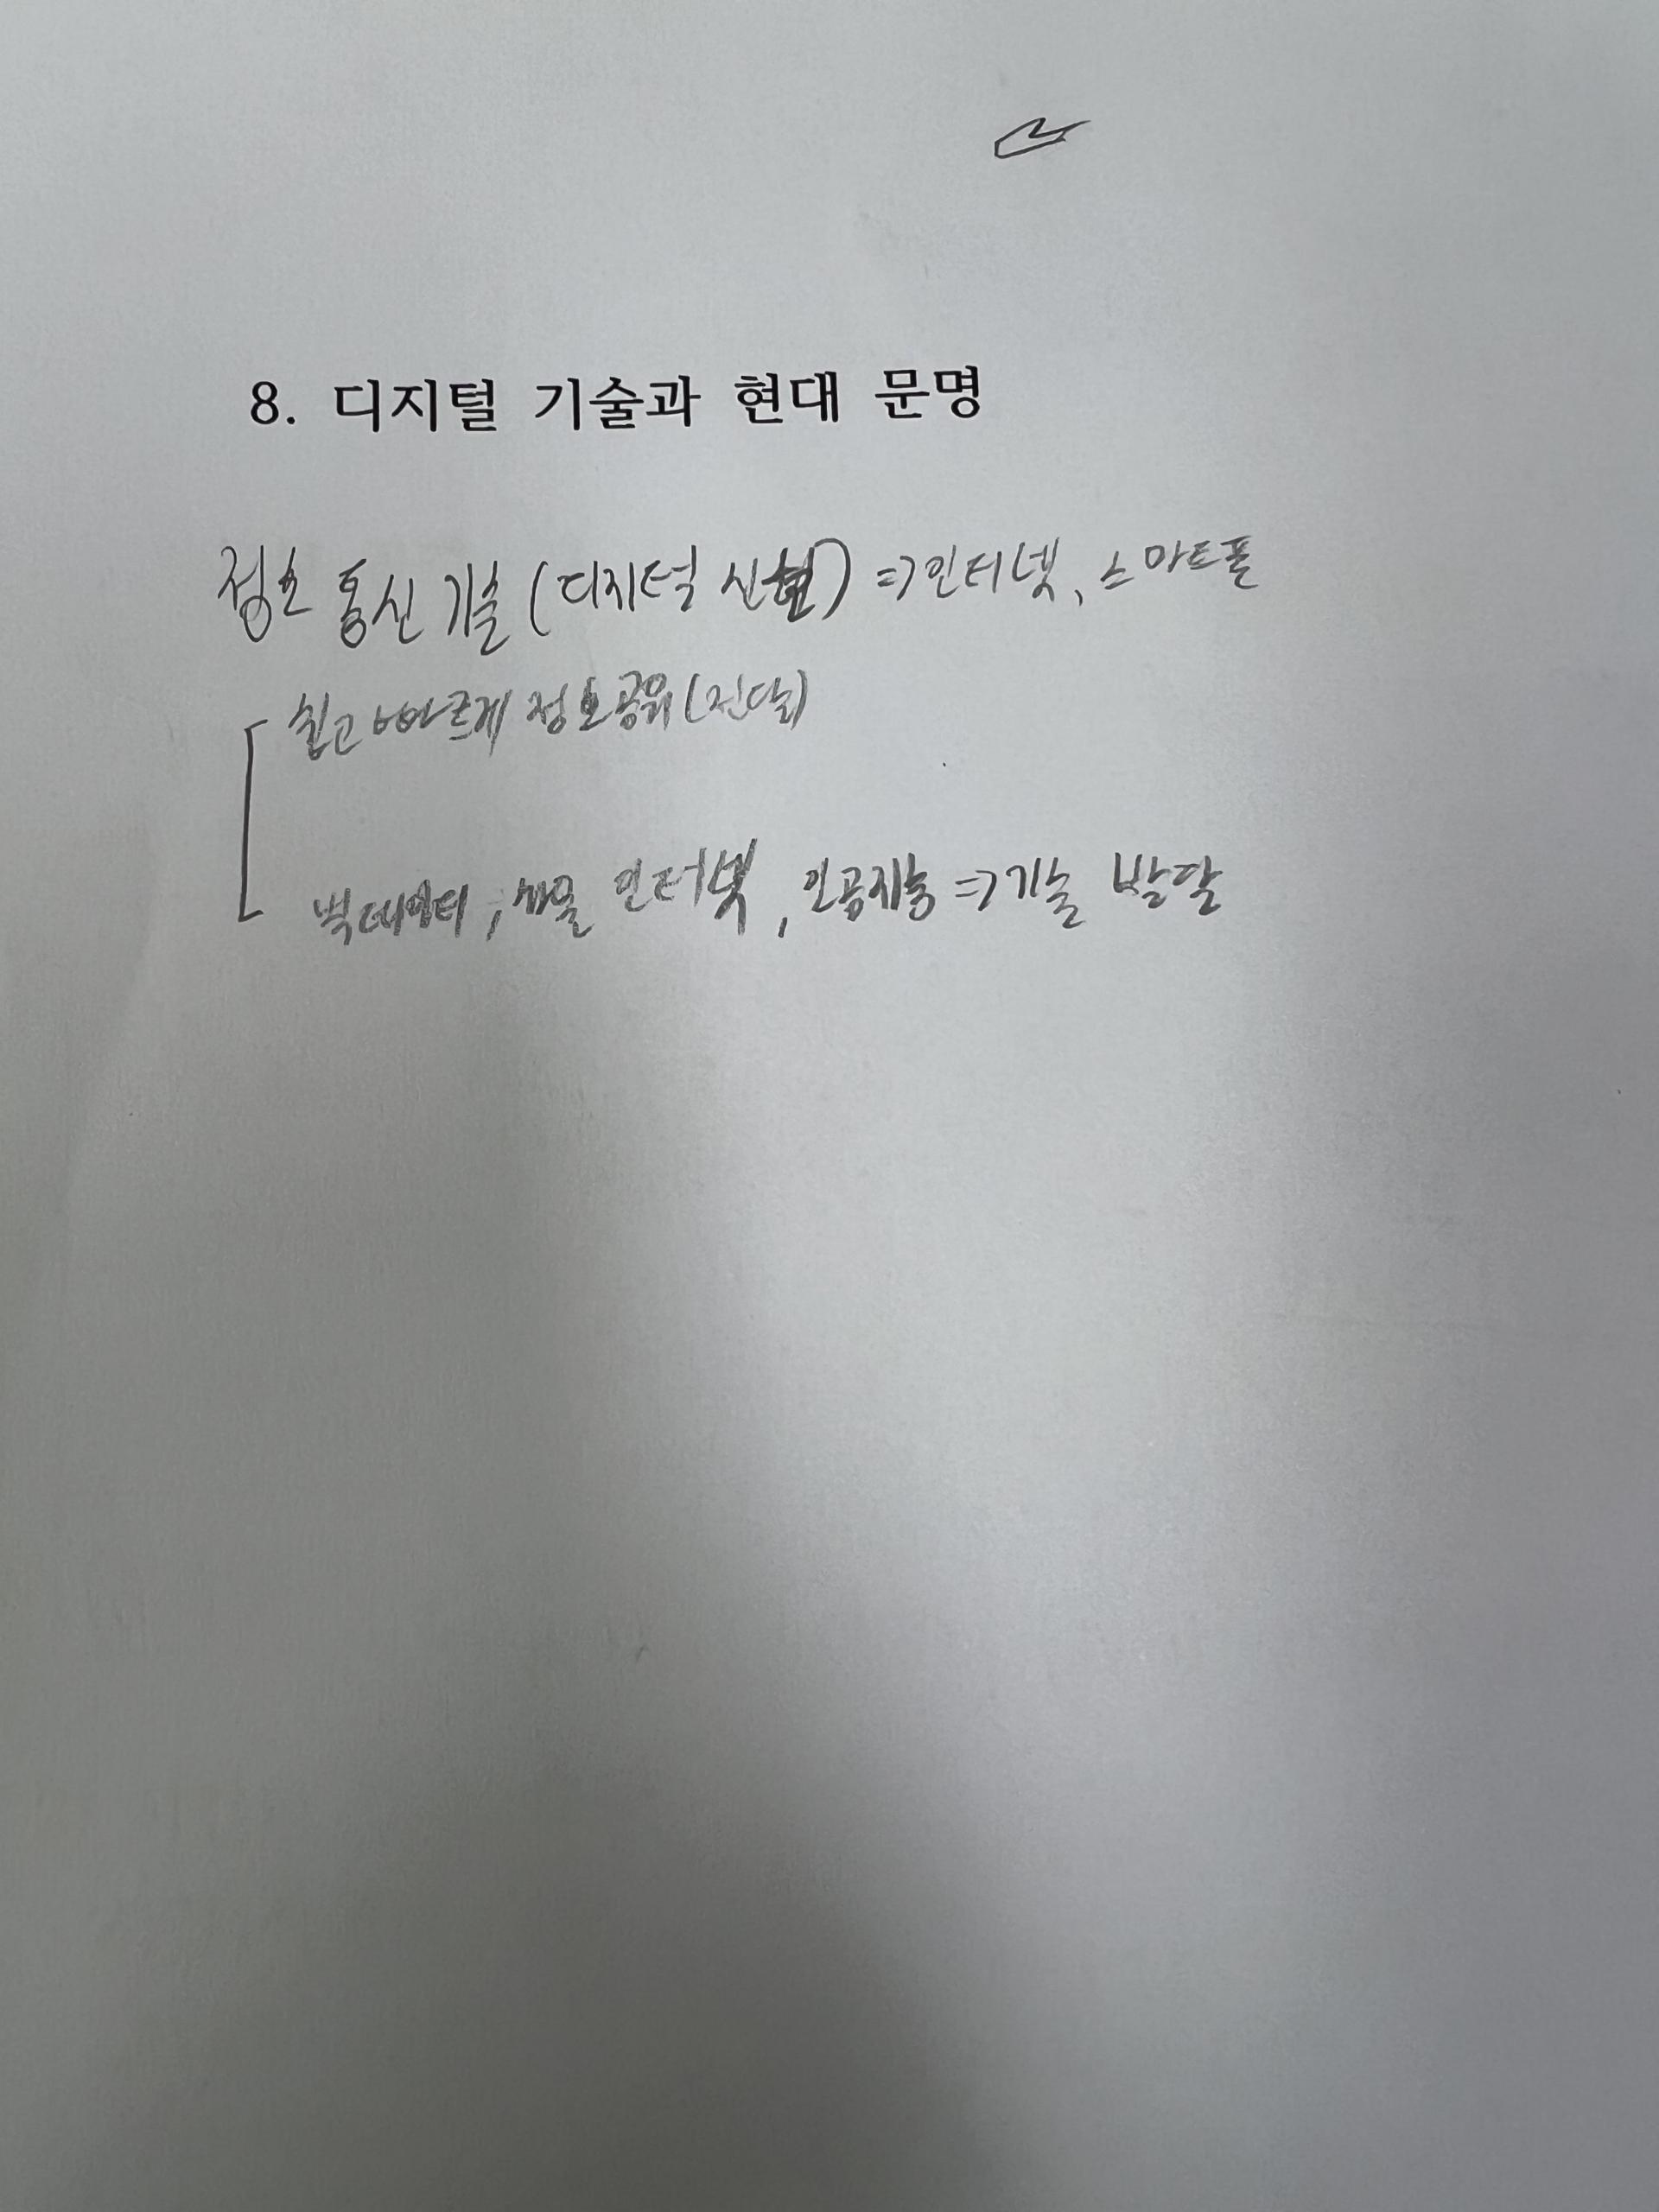 8. 디지털 기술과 현대 문명
정보 통신 기술 (디지털 신호) => 인터넷, 스마트폰
쉽고 빠르게 정보공유 (전달)
빅데이터, 사물 인터넷, 인공지능 => 기술 발달